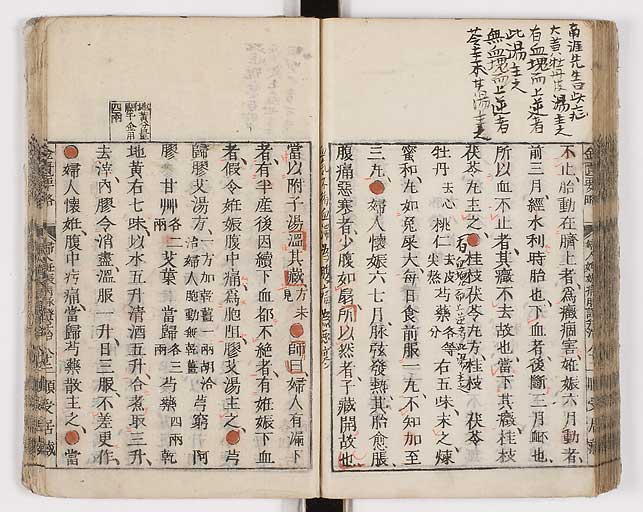 南涯先生曰此症
大黄牡丹皮湯主之
有血塊而上逆者
此湯主之
無血塊而上逆者
苓主朮甘湯主之
不止胎動在臍上者為癥痼害妊娠六月動者
前三月經水利時胎也下血者後斷三月衃也
所以血不止者其癥不去故也當下其癥桂枝
茯苓丸主之桂枝茯苓丸方桂枝 茯苓
牡丹去心 桃仁去皮尖熬 芍藥各等分 右五味末之煉
蜜和丸如兔屎大每日食前服一丸不知加至
三丸婦人懷娠六七月脉弦發熱其胎愈脹
腹痛惡寒者少腹如扇所以然者子藏開故也
當以附子湯溫其藏方未見師曰婦人有漏下
者有半産後因續下血都不絶者有妊娠下血
者假令妊娠腹中痛為胞阻膠艾湯主之芎
歸膠艾湯方一方加乾薑一兩胡洽治婦人胞動無乾薑 芎藭 阿
膠 甘艸各二兩 艾葉 當歸各三兩 芍藥四兩 乾
地黄右七味以水五升清酒五升合煮取三升
去滓内膠令消盡溫服一升日三服不差更作
婦人懷妊腹中㽲痛當歸芍藥散主之當
金匱要略